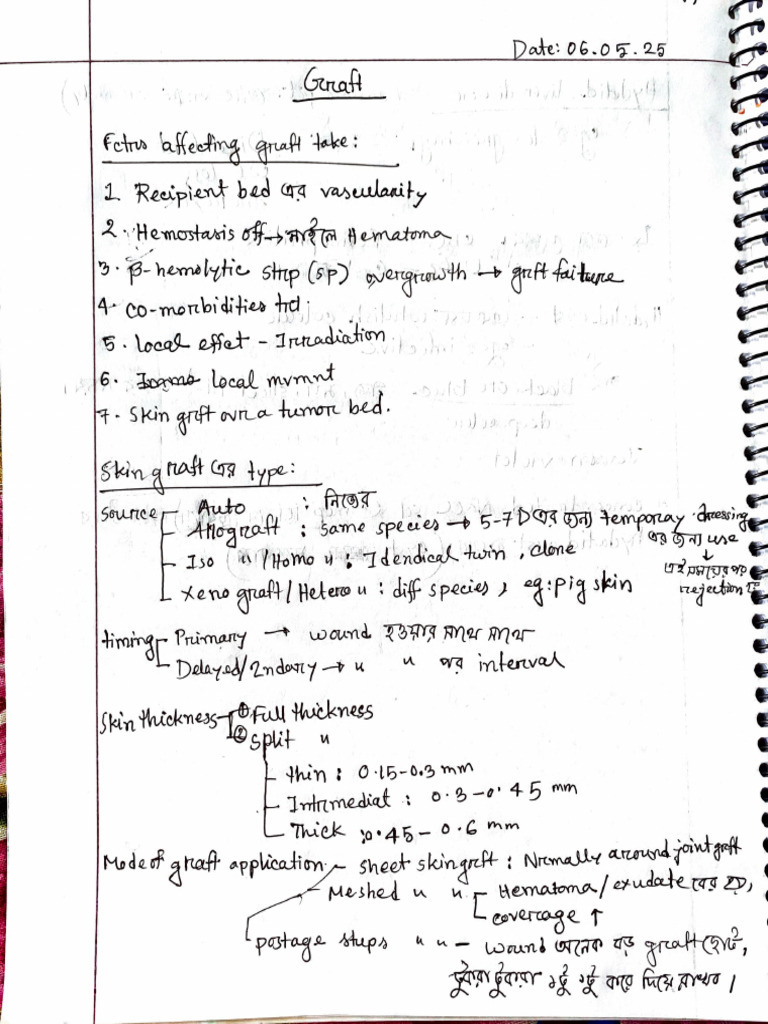 Date: 06.05.25
Graft
Fctrs affecting graft take:
1. Recipient bed এর vascularity
2. Hemostasis off → নাহলে Hematoma
3. β-hemolytic strp (sp) overgrowth → grft failure
4. co-morbidities trt.
5. Local effat - Irradiation
6. local mvmnt
7. Skin grft ovr a tumor bed.
Skin graft এর type:
Source Auto : নিজের
Allograft : same species → 5-7 D এর জন্য temporay dressing
এর জন্য use
↓
এই সময়ের পর
rejection
Iso "/Homo " : Idendical twin, clone
Xeno graft/Hetero " : diff species, eg: pig skin
timing Primary → wound হওয়ার সাথে সাথে
Delayed/2ndary → " " পর interval
Skin thickness ① Full thickness
② Split "
thin : 0.15-0.3 mm
Intrmediat : 0.3-0.45 mm
Thick : 0.45-0.6 mm
Mode of graft application sheet skin grft : Nrmally around joint grft
Meshed " " Hematoma/exudate বের হয়,
coverage ↑
postage stups " " - wound অনেক বড় graft ছোট,
টুকরা টুকরা করে দিয়ে রাখব।